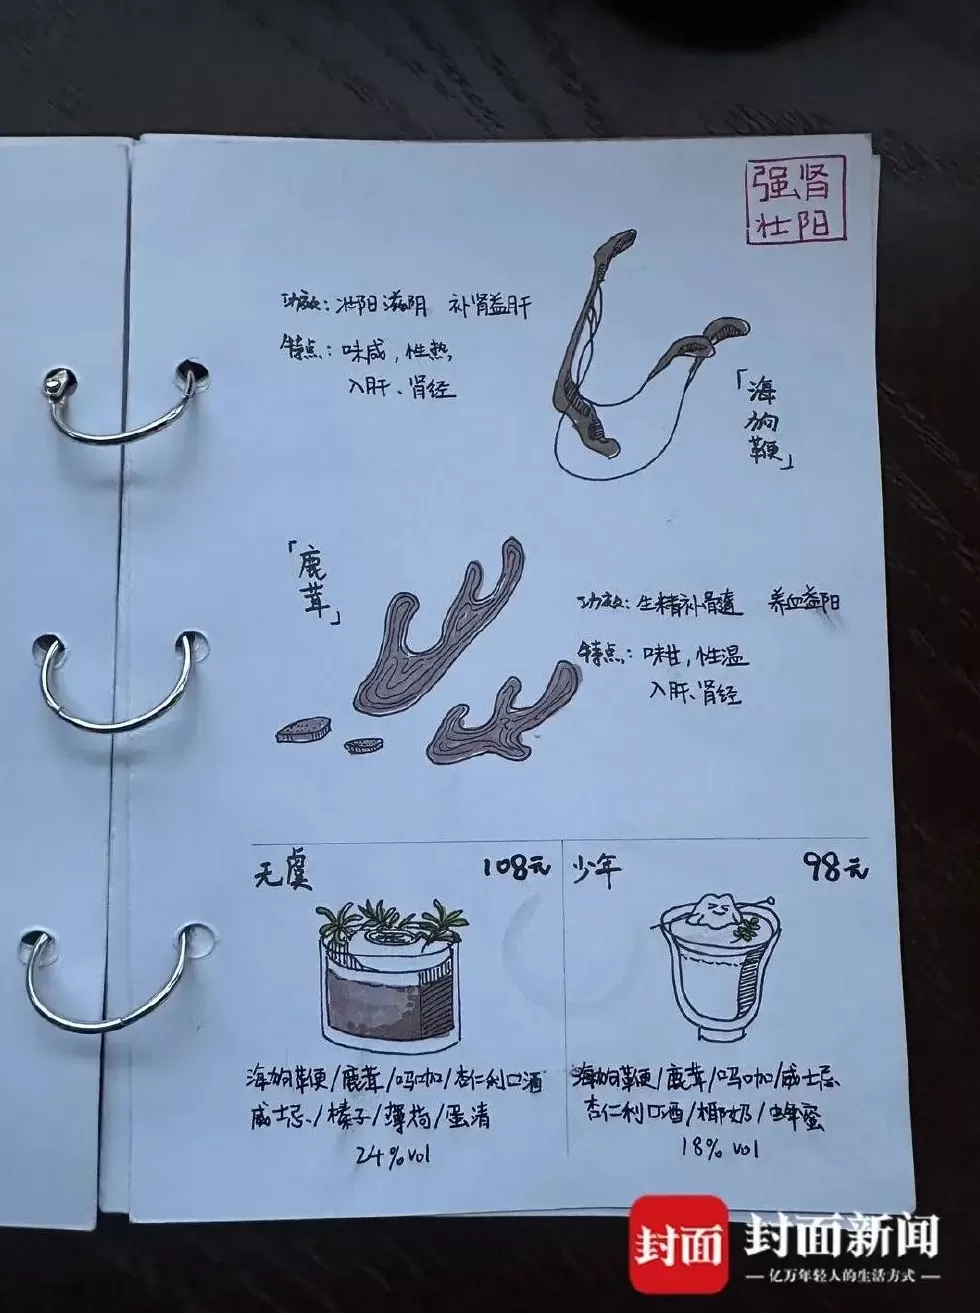 强肾
壮阳
功效：壮阳滋阴 补肾益肝
特点：味咸，性热，
入肝、肾经
「海狗鞭」
「鹿茸」
功效：生精补骨髓 养血益阳
特点：味甘，性温
入肝、肾经
无虞 108元
海狗鞭/鹿茸/吗咖/杏仁利口酒
威士忌/榛子/薄荷/蛋清
24%vol
少年 98元
海狗鞭/鹿茸/吗咖/威士忌
杏仁利口酒/椰奶/蜂蜜
18% vol
封面
封面新闻
亿万年轻人的生活方式